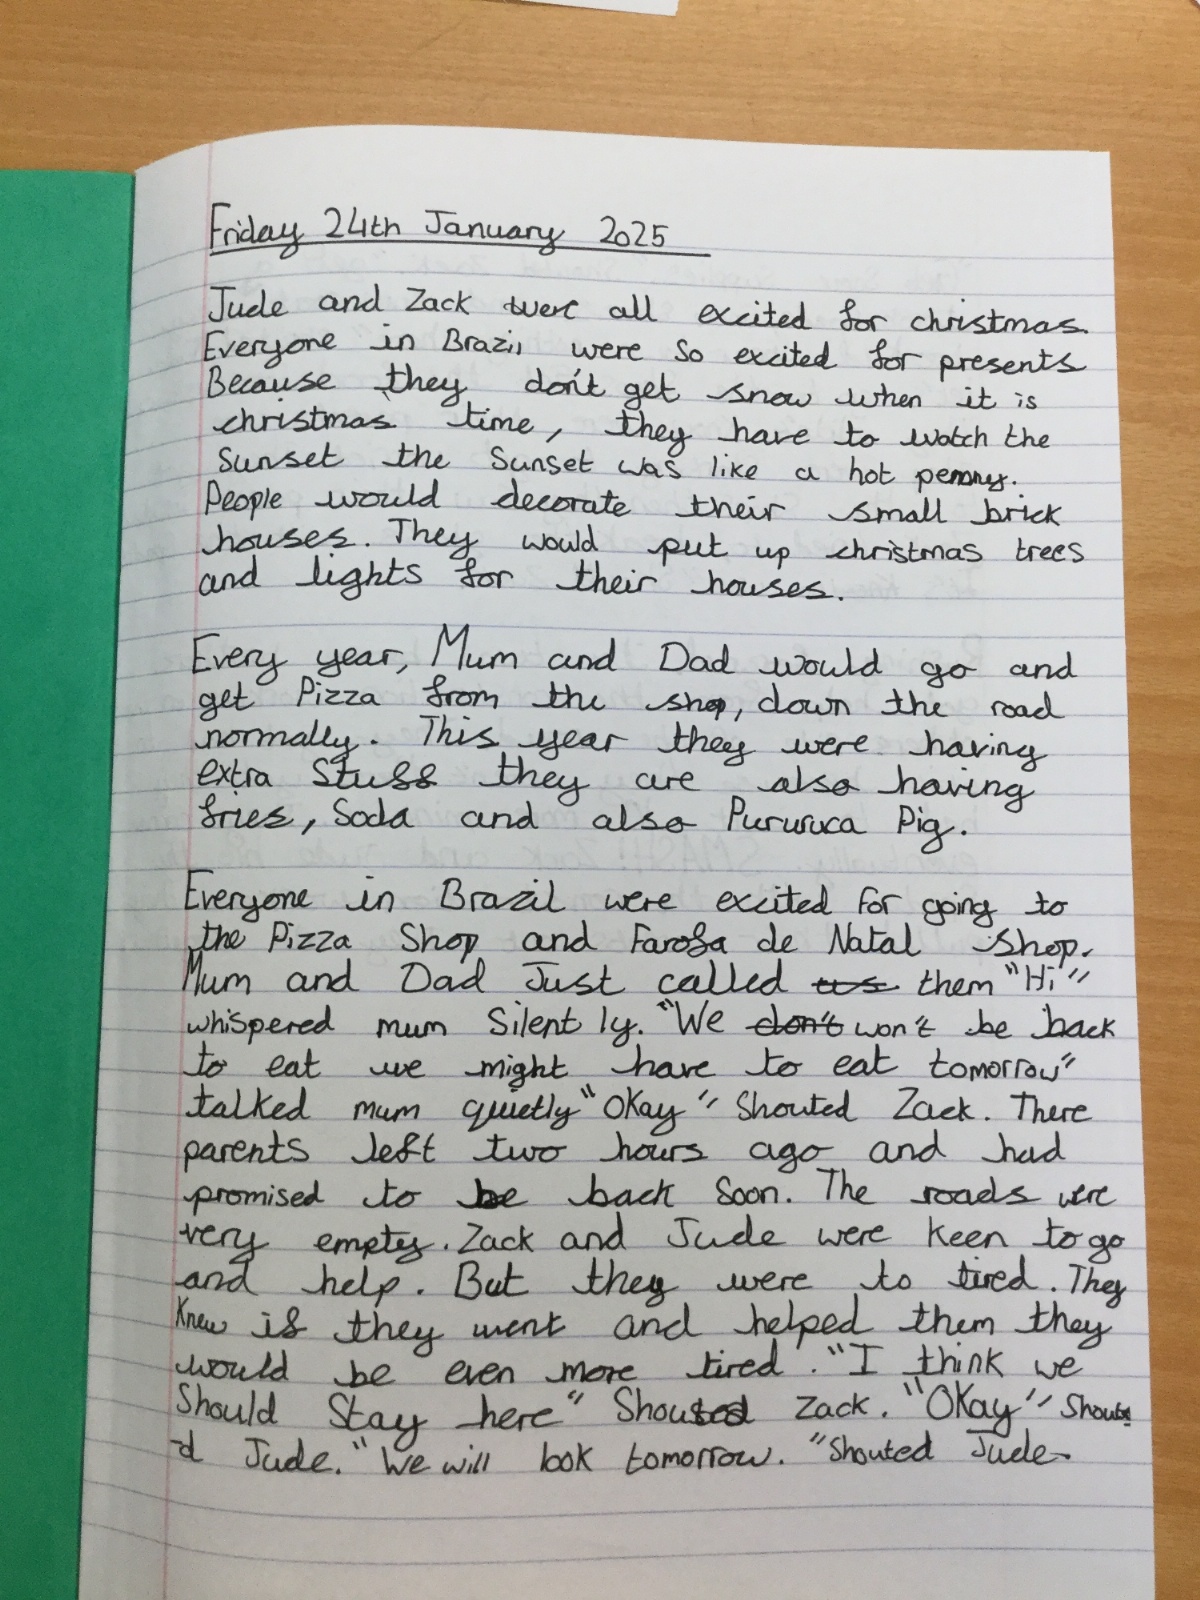 Friday 24th January 2025
Jude and Zack were all excited for christmas.
Everyone in Brazil were So excited for presents
Because they don't get snow when it is
christmas time, they have to watch the
Sunset the Sunset was like a hot penny.
People would decorate their small brick
houses. They would put up christmas trees
and lights for their houses.
Every year, Mum and Dad would go and
get Pizza from the shop, down the road
normally. This year they were having
extra Stuff they are also having
fries, Soda and also Pururuca Pig.
Everyone in Brazil were excited For going to
the Pizza Shop and Farofa de Natal shop.
Mum and Dad Just called them "Hi"
whispered mum Silent ly. "We don't won't be back
to eat we might have to eat tomorrow"
talked mum quietly "Okay" Shouted Zack. There
parents left two hours ago and had
promised to be back Soon. The roads were
very empty. Zack and Jude were Keen to go
and help. But they were to tired. They
Knew if they went and helped them they
would be even more tired. "I think we
Should Stay here" Shouted Zack. "Okay" Shoute
-d Jude. "We will look tomorrow. "Shouted Jude.